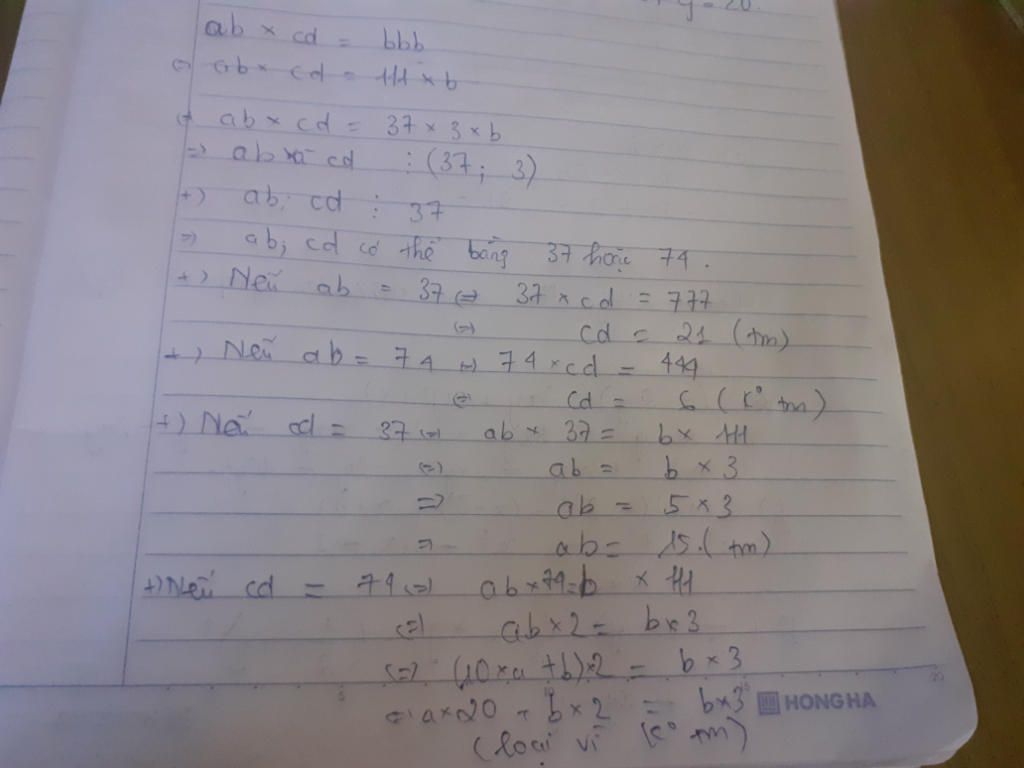 y = 20.
ab × cd = bbb
⇔ ab × cd = 111 × b
⇔ ab × cd = 37 × 3 × b
=> ab và cd ⋮ (37; 3)
+) ab; cd ⋮ 37
=> ab; cd có thể bằng 37 hoặc 74.
+) Nếu ab = 37 ⇔ 37 × cd = 777
⇔ cd = 21 (tm)
+) Nếu ab = 74 ⇔ 74 × cd = 444
⇔ cd = 6 (K° tm)
+) Nếu cd = 37 ⇔ ab × 37 = b × 111
⇔ ab = b × 3
=> ab = 5 × 3
=> ab = 15. (tm)
+) Nếu cd = 74 ⇔ ab × 74 = b × 111
⇔ ab × 2 = b × 3
⇔ (10 × a + b) × 2 = b × 3
HONG HA
⇔ a × 20 + b × 2 = b × 3
(loại vì K° tm)